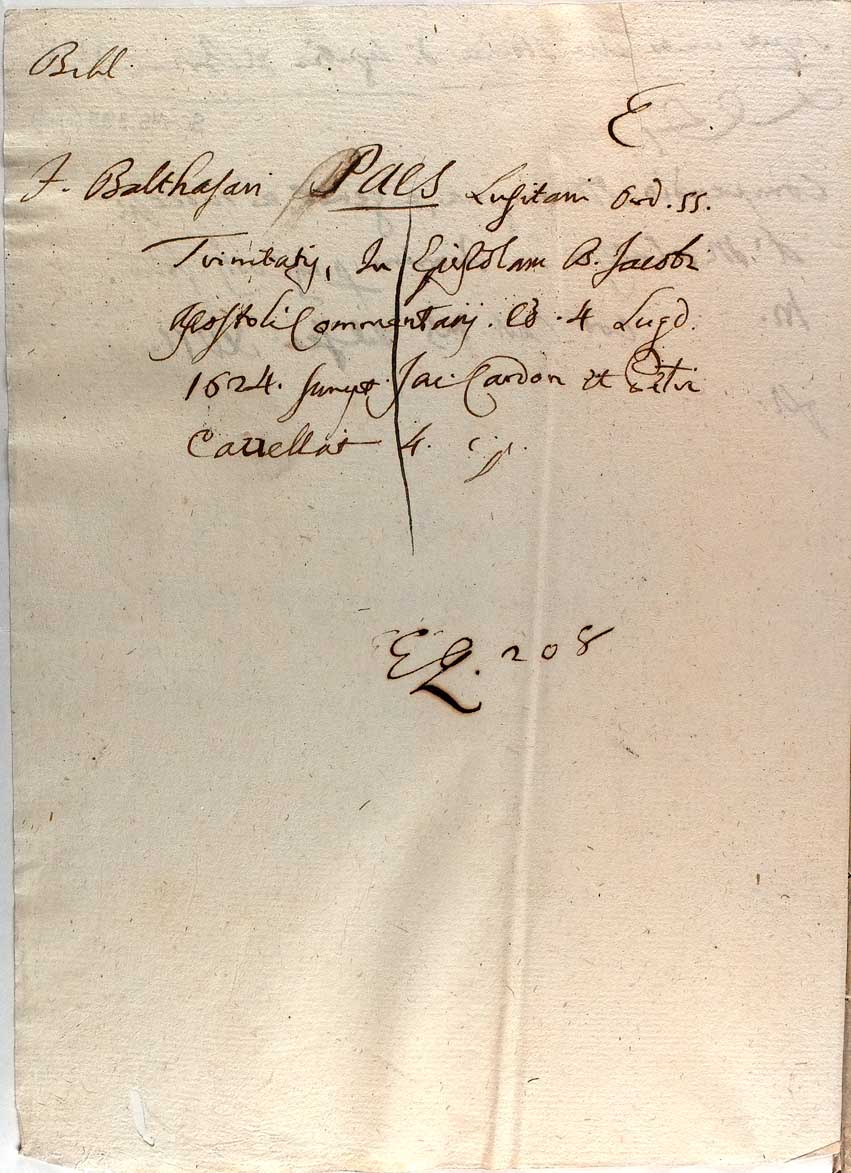 Bibl.
E.
F. Balthasari PAES Lusitani Ord. SS.
Trinitatis, In Epistolam B. Jacobi
Apostoli Commentarij. Ed. 4 Lugd.
1624. sumpt. Jac. Cardon et Petri
Cavellat 4.
E 2. 208